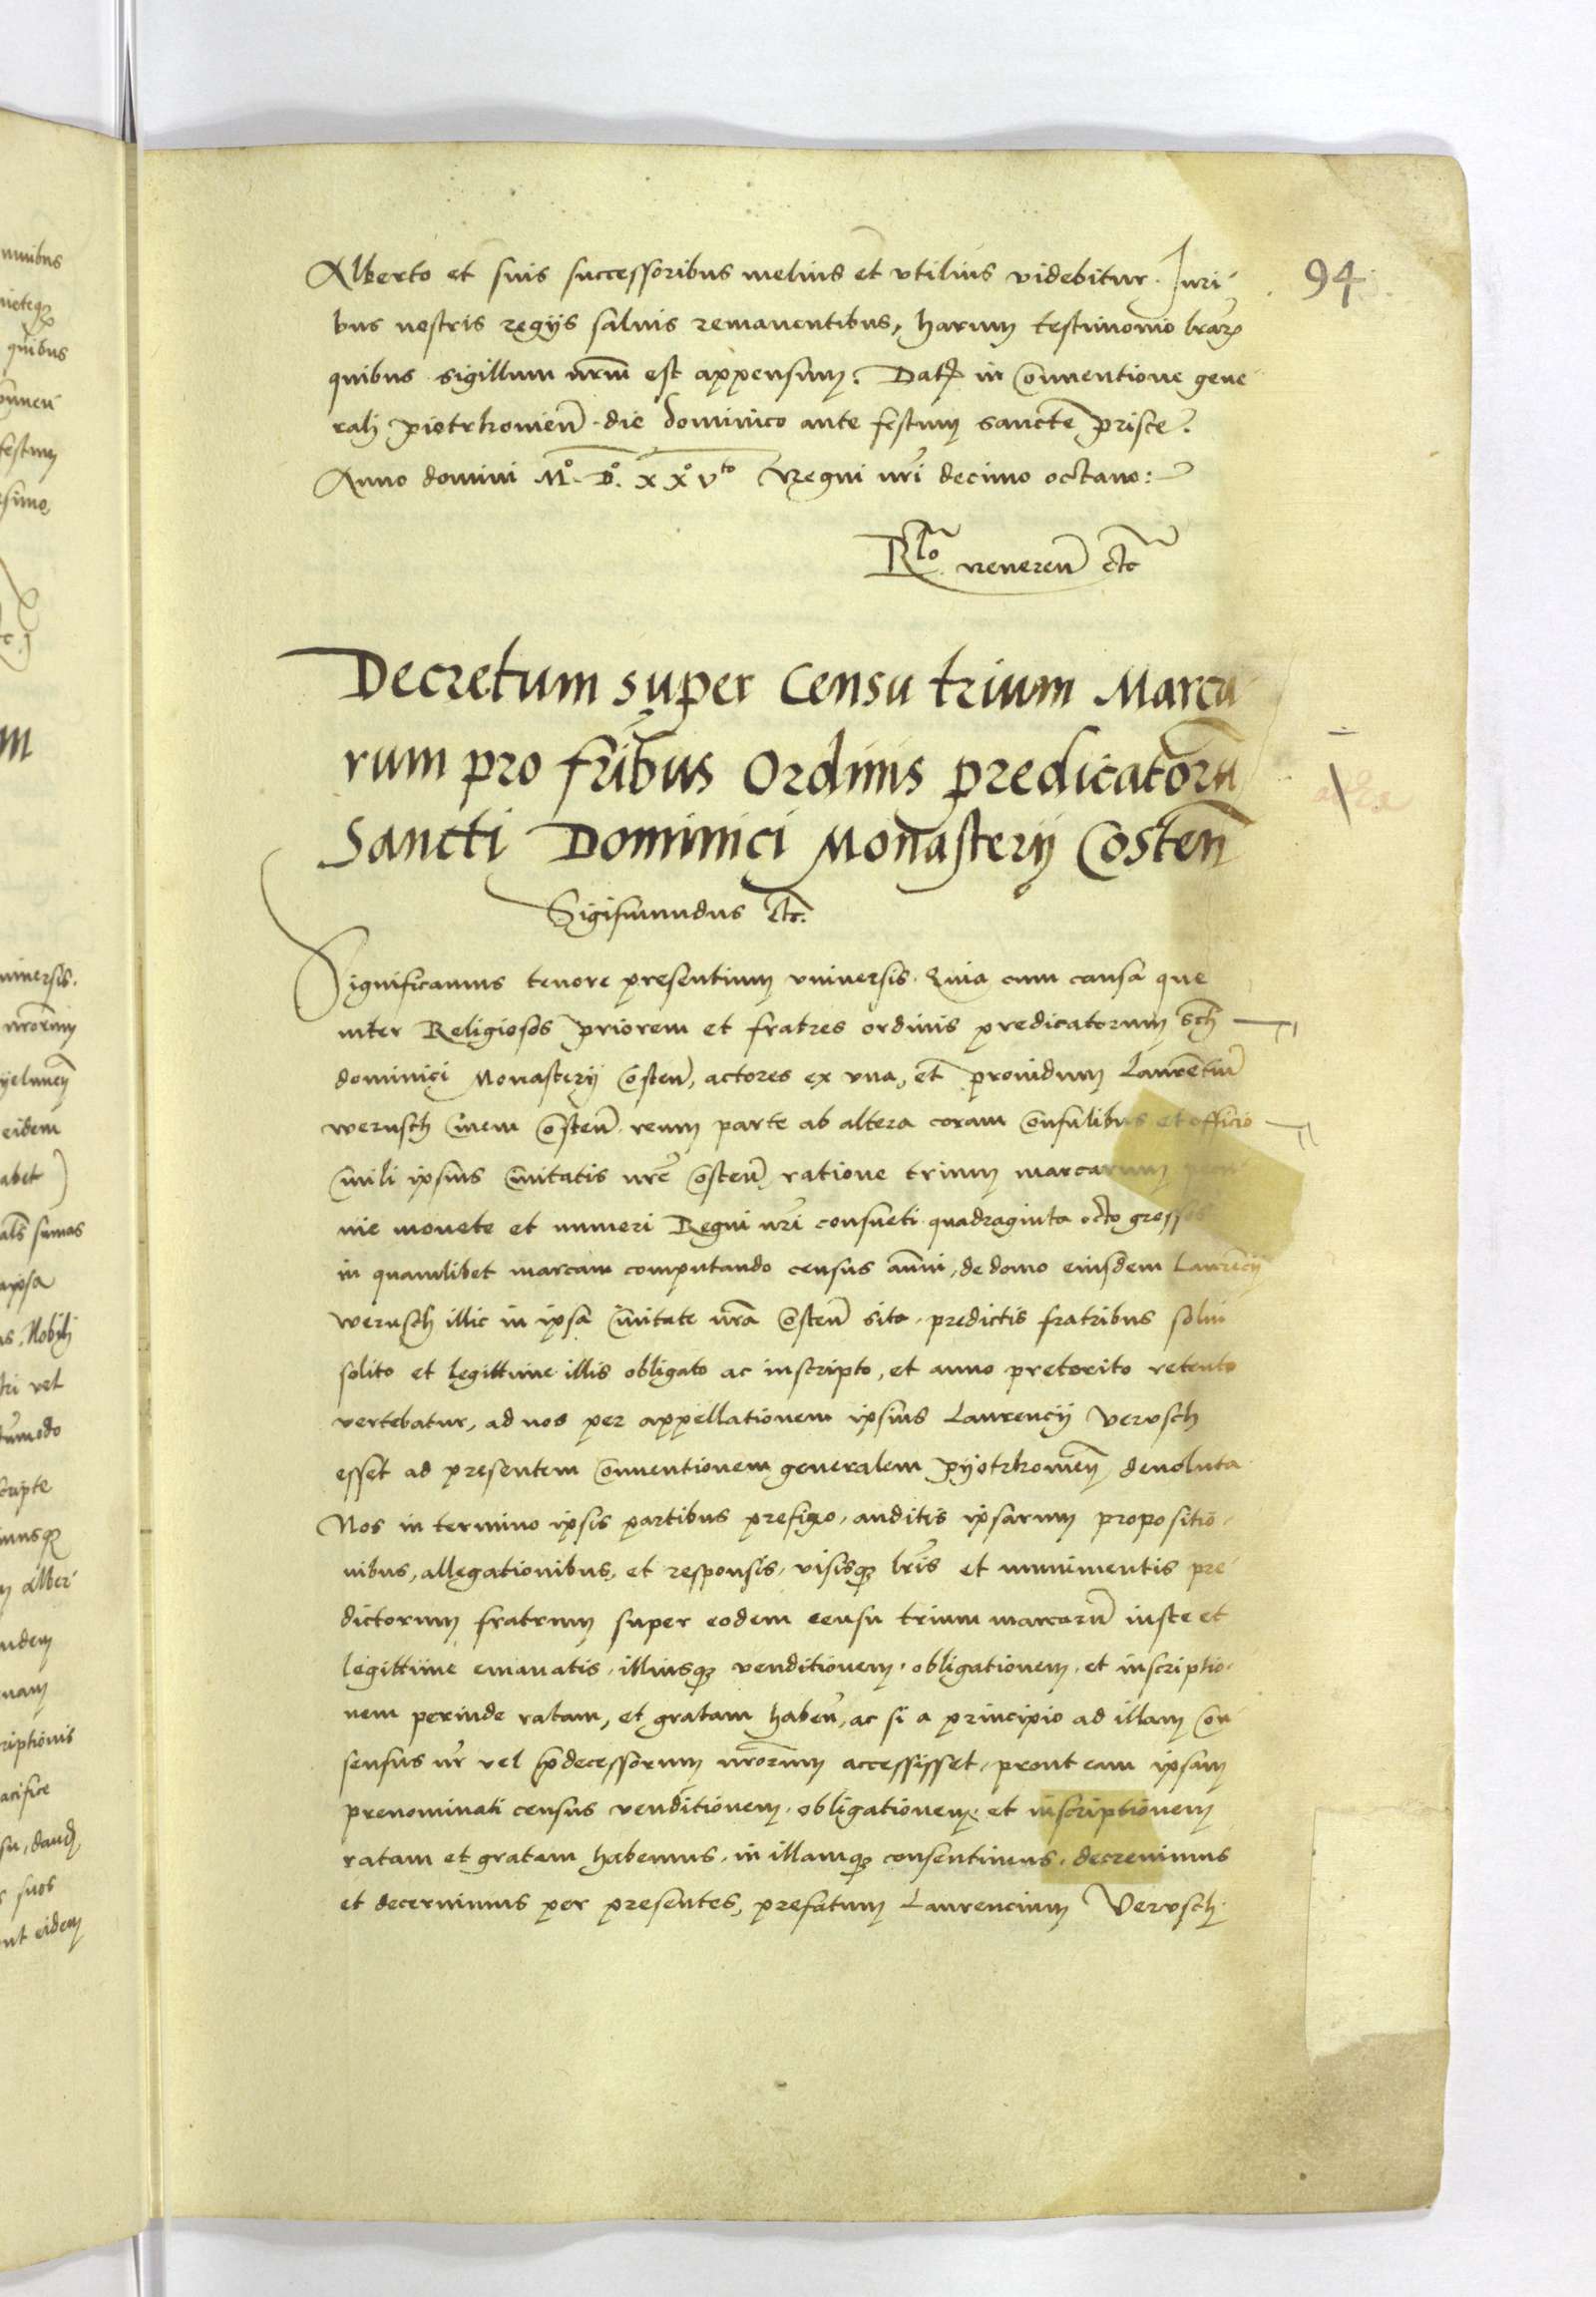 94
Alberto et suis successoribus melius et vtilius videbitur. Juri
bus nostris regijs saluis remanentibus, harum testimonio lrarꝝ
quibus sigillum nrm̄ est appensum. Datꝭ in Conuentione gene
rali Piotrkouien̄ die dominico ante festum sancte Prisce.
Anno domini Mº. Dº. XXºVto Regni nr̄i decimo octauo:
Rlo. reueren̄ etc
Decretum super Censu trium Marca
rum pro fr̄ibus Ordinis predicatorū
Sancti Dominici Monasterij Costen̄
Sigismundus etc.
Significamus tenore presentium vniuersis. Quia cum causa que
inter Religiosos Priorem et fratres ordinis predicatorum Scti
dominici Monasterij Costen̄, actores ex vna, et prouidum Laurentiū
werusch Ciuem Costen̄ reum parte ab altera coram Consulibus et officio
Ciuili ipsius Ciuitatis nr̄e Costen̄ ratione trium marcarum pecu
nie monete et numeri Regni nr̄i consueti quadraginta octo grossos
in quamlibet marcam computando census anui, de domo eiusdem Laurencij
werusch illic in ipsa Ciuitate nr̄a Costen̄ sita. predictis fratribus solui
solito et legittime illis obligato ac inscripto, et anno preterito retento
vertebatur, ad nos per appellationem ipsius Laurencij Verusch
esset ad presentem Conuentionem generalem Pyotrkouien̄ deuoluta
Nos in termino ipsis partibus prefixo, auditis ipsarum propositio
nibus, allegationibus, et responsis, visisqꝫ lr̄is et munimentis pre
dictorum fratrum super eodem censu trium marcarū iuste et
legittime emanatis, illiusqꝫ venditionem, obligationem, et inscriptio
nem perinde ratam, et gratam haben̄, ac si a principio ad illam Con
sensus nr̄ vel p̄decessorum nr̄orum accessisset, prout eam ipsam
prenominati census venditionem, obligationem, et inscriptionem
ratam et gratam habemus, in illamqꝫ consentimus, decreuimus
et decernimus per presentes, prefatum Laurencium Verusch.